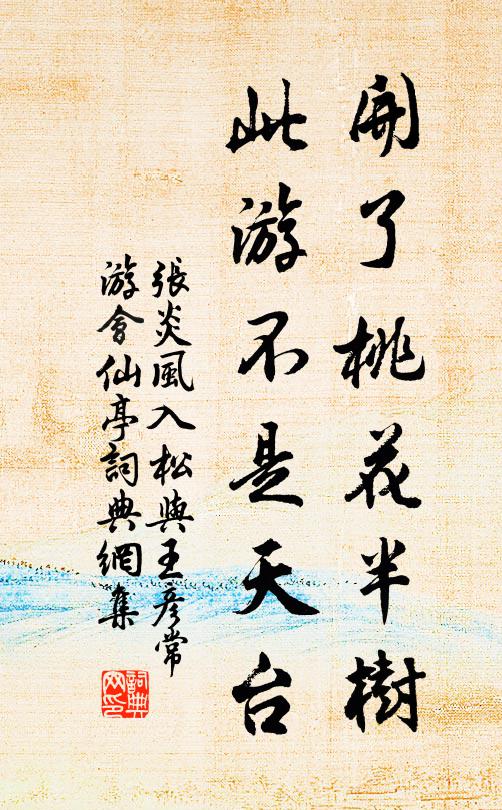 開了桃花半樹
此游不是天台
張炎風入松與王彥常
游會仙亭詞典網集
詞典网印